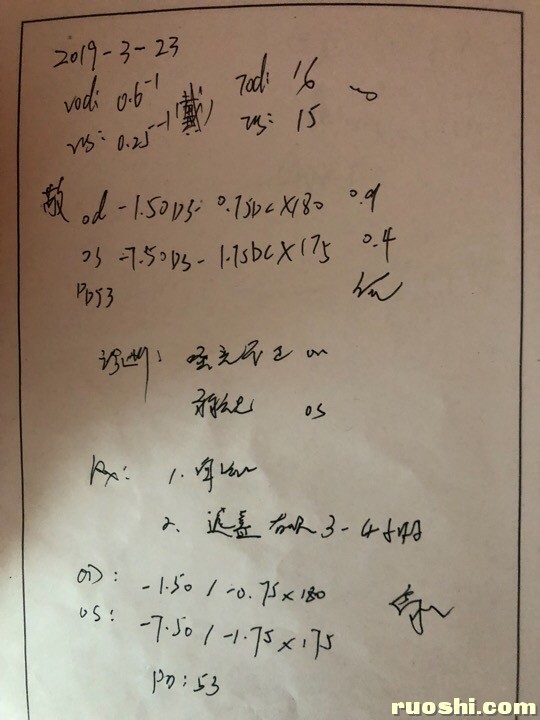 2019-3-23
vod: 0.6⁻¹ Tod: 16
vs: 0.25⁻¹ (戴) Ts: 15
散 od -1.50DS- 0.75DC×180 0.9
os -7.50DS- 1.75DC×175 0.4
PD53
诊断: 屈光不正 ou
弱视 os
Rx: 1.
2. 遮盖 右眼 3-4小时
OD: -1.50 / -0.75×180
OS: -7.50 / -1.75×175
PD: 53
ruoshi.com